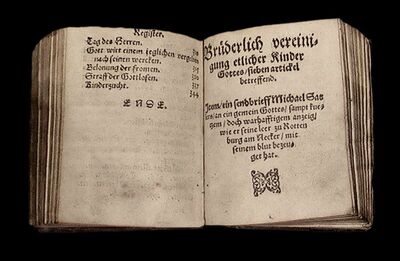 Register.
Tag des Herren.
Gott wirt einem jeglichen vergelten
nach seinen wercken.
Belonung der fromen.
Straff der Gottlosen.
Kinderzucht. 344
E N D E.
Brüderlich vereini-
gung etlicher Kinder
Gottes/ sieben artickel
betreffend.
Item/ ein sendbrieff Michael Sat
lers/ an ein gemein Gottes/ sampt kur
tzem/ doch warhafftigem anzeig/
wie er seine leer zu Rotten
burg am Necker/ mit
seinem blut bezeu-
get hat.